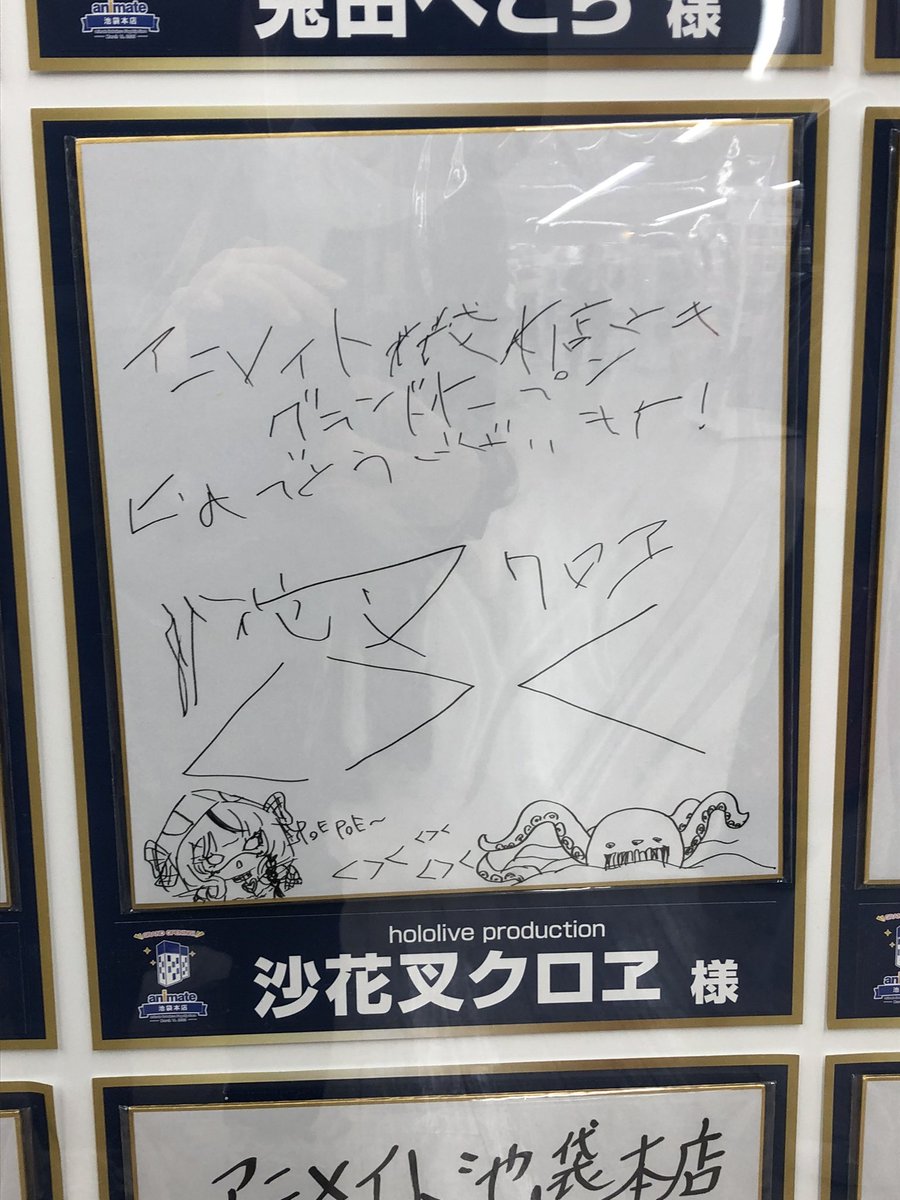 animate
池袋本店
兎田ぺこら 様
アニメイト池袋本店さま
グランドオープン
おめでとうございます!
沙花叉 クロヱ
POE POE~
hololive production
GRAND OPENING
animate
池袋本店
沙花叉クロヱ 様
アニメイト池袋本店